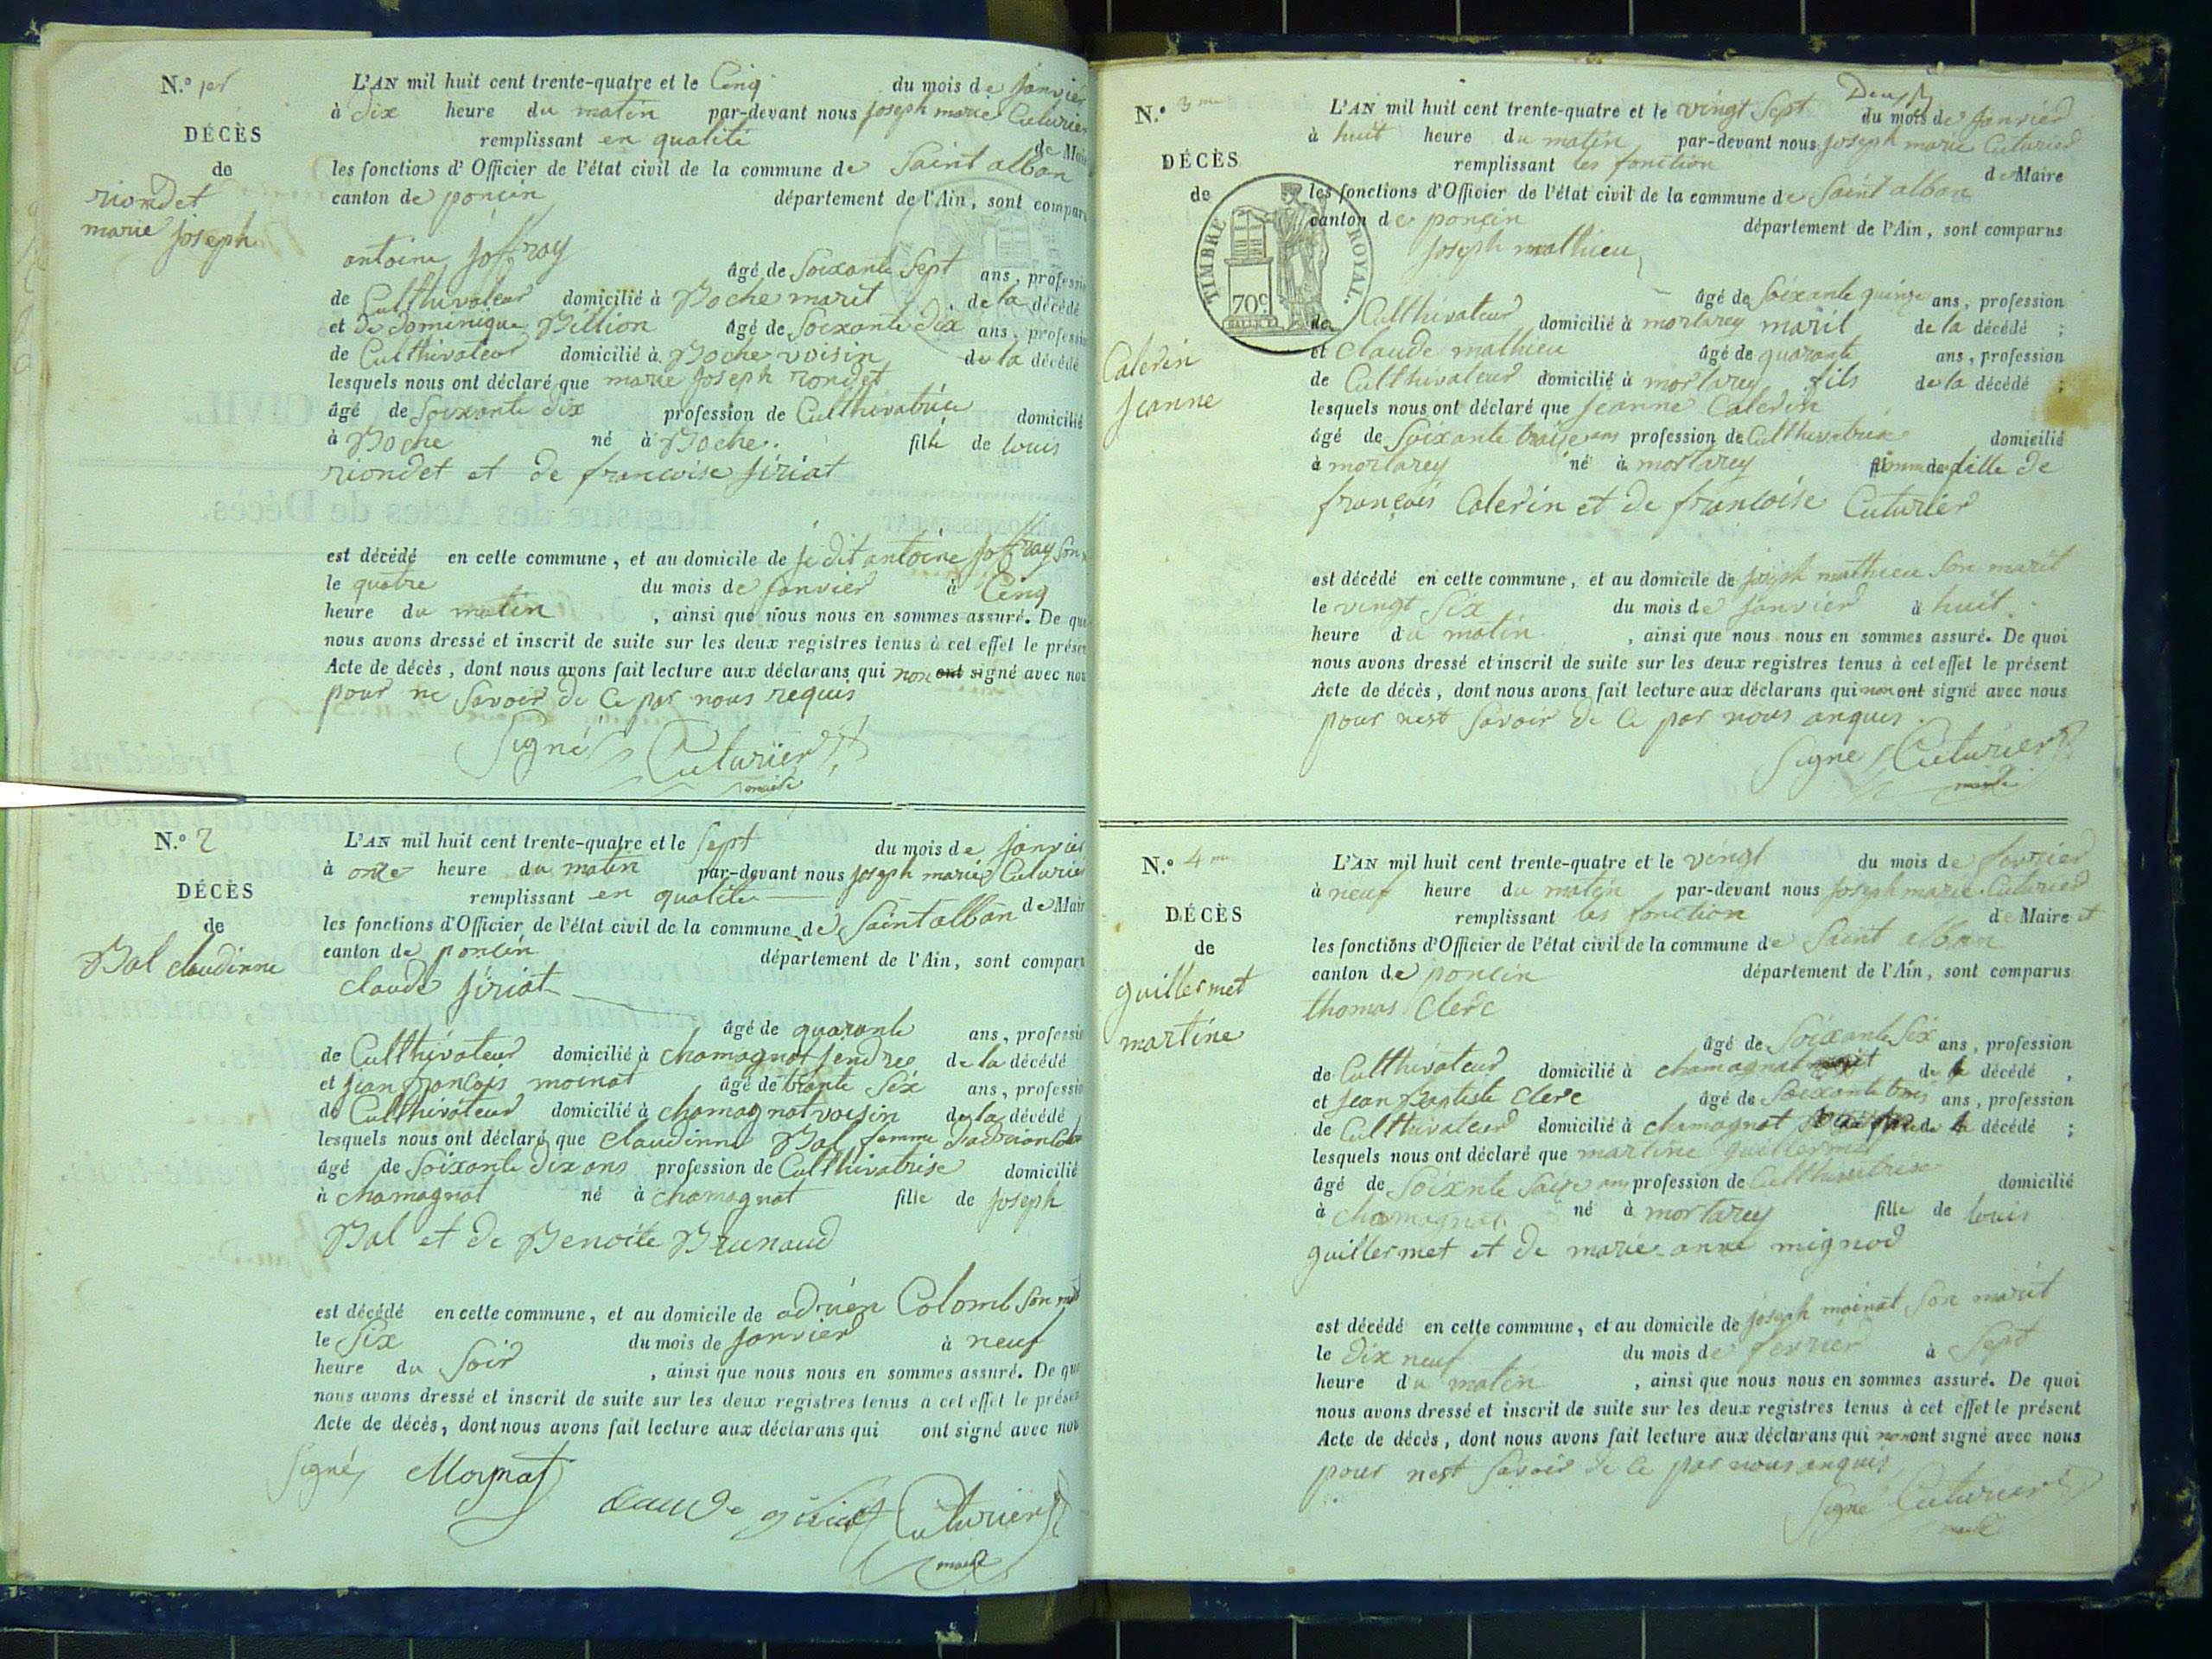 N.º 1er
DÉCÈS
de
riondet
marie joseph
L'AN mil huit cent trente-quatre et le Cinq du mois de janvier
à dix heure du matin par-devant nous joseph marie Cuturier
remplissant en qualité de Mai
les fonctions d'Officier de l'état civil de la commune de Saint alban
canton de poncin département de l'Ain, sont compar
antoine joffray
âgé de Soixante Sept ans, professi
de Culthivateur domicilié à Boche marit de la décédé
et de dominique Billion âgé de Soixante dix ans, professi
de Culthivateur domicilié à Boche voisin de la décédé
lesquels nous ont déclaré que marie joseph rondet
âgé de Soixante dix profession de Culthivatrice domicilié
à Boche né à Boche fille de louis
riondet et de francoise firiat
est décédé en cette commune, et au domicile de antoine joffray son
le quatre du mois de janvier à Cinq
heure du matin, ainsi que nous nous en sommes assuré. De que
nous avons dressé et inscrit de suite sur les deux registres tenus à cet effet le présen
Acte de décès, dont nous avons fait lecture aux déclarans qui non ont signé avec nou
pour ne Savoir de Ce par nous requis
Signé Cuturier
maire
N.º 2
DÉCÈS
de
Bal claudinne
L'AN mil huit cent trente-quatre et le Sept du mois de janvier
à onze heure du matin par-devant nous joseph marie Cuturier
remplissant en qualité de Mair
les fonctions d'Officier de l'état civil de la commune de Saint alban
canton de poncin département de l'Ain, sont compar
claude firiat
âgé de quarante ans, professi
de Culthivateur domicilié à chamagnat jendre de la décédé
et jean francois moinat âgé de trante Six ans, professi
de Culthivateur domicilié à chamagnat voisin de la décédé
lesquels nous ont déclaré que claudinne Bal femme
âgé de Soixante dix ans profession de Culthivatrise domicilié
à chamagnat né à chamagnat fille de joseph
Bal et de Benoite Brunaud
est décédé en cette commune, et au domicile de adrien Colomb Son
le Six du mois de janvier à neuf
heure du Soir, ainsi que nous nous en sommes assuré. De que
nous avons dressé et inscrit de suite sur les deux registres tenus à cet effet le présen
Acte de décès, dont nous avons fait lecture aux déclarans qui ont signé avec nou
Signé Moynat
Claude Cuturier
maire
N.º 3me
DÉCÈS
de
Calerin
jeanne
TIMBRE ROYAL.
70c
L'AN mil huit cent trente-quatre et le vingt Sept du mois de janvier
à huit heure du matin par-devant nous joseph marie Cuturier
remplissant les fonction de Maire
les fonctions d'Officier de l'état civil de la commune de Saint alban
canton de poncin département de l'Ain, sont comparus
joseph mathieu
âgé de Soixante quinze ans, profession
de Culthivateur domicilié à mortarey marit de la décédé ;
et claude mathieu âgé de quarante ans, profession
de Culthivateur domicilié à mortarey fils de la décédé ;
lesquels nous ont déclaré que jeanne Calerin
âgé de Soixante traise ans profession de Culthivatrice domicilié
à mortarey né à mortarey fille de
françois Calerin et de francoise Cuturier
est décédé en cette commune, et au domicile de joseph mathieu Son marit
le vingt Six du mois de janvier à huit
heure du matin, ainsi que nous nous en sommes assuré. De quoi
nous avons dressé et inscrit de suite sur les deux registres tenus à cet effet le présent
Acte de décès, dont nous avons fait lecture aux déclarans qui non ont signé avec nous
pour nest Savoir de Ce par nous anquis
Signe Cuturier
maire
N.º 4me
DÉCÈS
de
guillermet
martine
L'AN mil huit cent trente-quatre et le vingt du mois de fevrier
à neuf heure du matin par-devant nous joseph marie Cuturier
remplissant les fonction de Maire et
les fonctions d'Officier de l'état civil de la commune de Saint alban
canton de poncin département de l'Ain, sont comparus
thomas Clerc
âgé de Soixante Six ans, profession
de Culthivateur domicilié à chamagnat de décédé ,
et jean Baptiste Clerc âgé de Soixante trois ans, profession
de Culthivateur domicilié à chamagnat de décédé ;
lesquels nous ont déclaré que martine guillermet
âgé de Soixnte Saize ans profession de Culthivatrise domicilié
à chamagnat né à mortarey fille de louis
guillermet et de marie anne mignod
est décédé en cette commune, et au domicile de joseph moinat Son marit
le dix neuf du mois de fevrier à Sept
heure du matin, ainsi que nous nous en sommes assuré. De quoi
nous avons dressé et inscrit de suite sur les deux registres tenus à cet effet le présent
Acte de décès, dont nous avons fait lecture aux déclarans qui non ont signé avec nous
pour nest Savoir de Ce par nous anquis
Signé Cuturier
maire